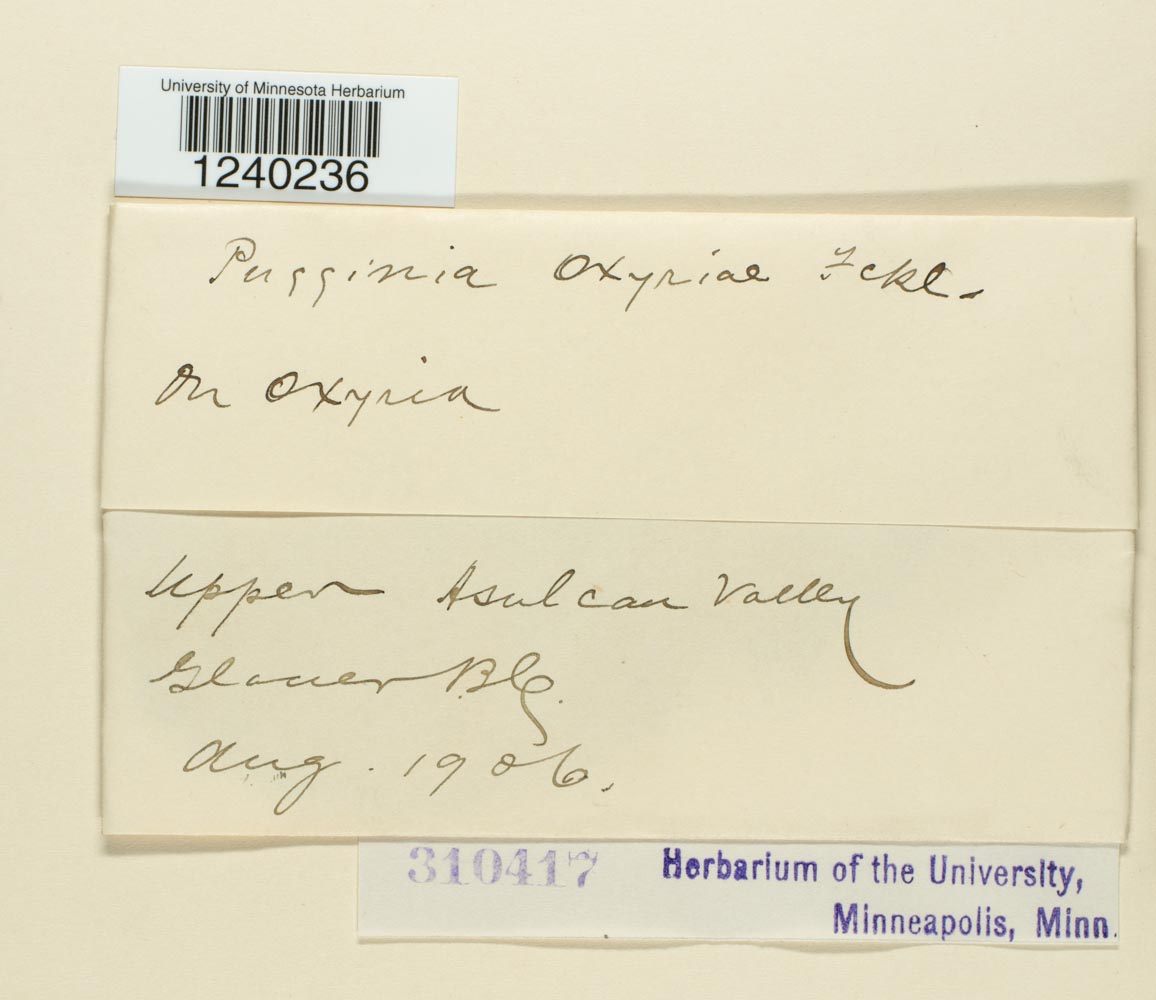 University of Minnesota Herbarium
1240236
Puccinia Oxyriae Fckl.
On Oxyria
Upper Asulcan Valley
Glacier B.C.
Aug. 1906.
310417
Herbarium of the University,
Minneapolis, Minn.